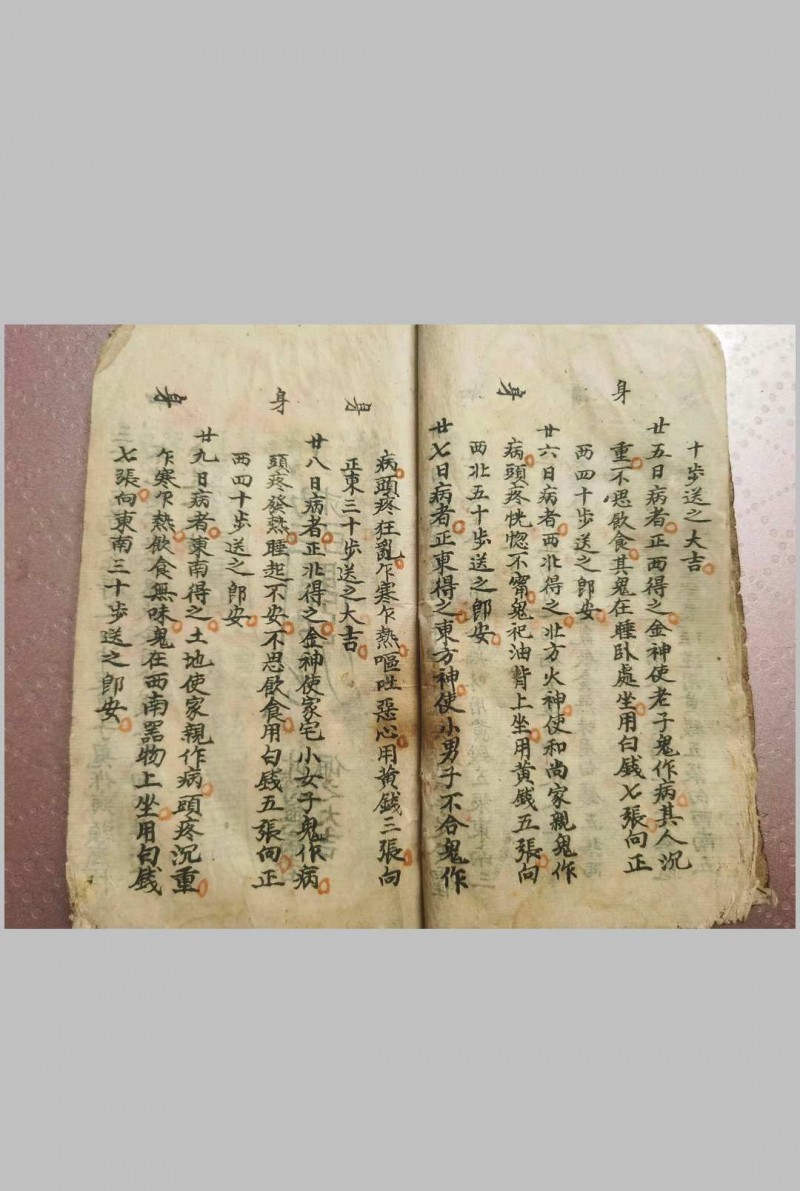 十步送之大吉
身
廿五日病者正西得之金神使老子鬼作病其人沉
重不思飲食其鬼在睡卧處坐用白錢七張向正
西四十步送之即安
身
廿六日病者西北得之北方火神使和尚家親鬼作
病頭疼恍惚不甯鬼祀油背上坐用黄錢五張向
西北五十步送之即安
廿七日病者正東得之東方神使小男子不合鬼作
身
病頭疼狂亂乍寒乍熱嘔吐惡心用黄錢三張向
正東三十步送之大吉
身
廿八日病者正北得之金神使家宅小女子鬼作病
頭疼發熱睡起不安不思飲食用白錢五張向正
西四十步送之即安
身
廿九日病者東南得之土地使家親作病頭疼沉重
乍寒乍熱飲食無味鬼在西南器物上坐用白錢
七張向東南三十步送之即安